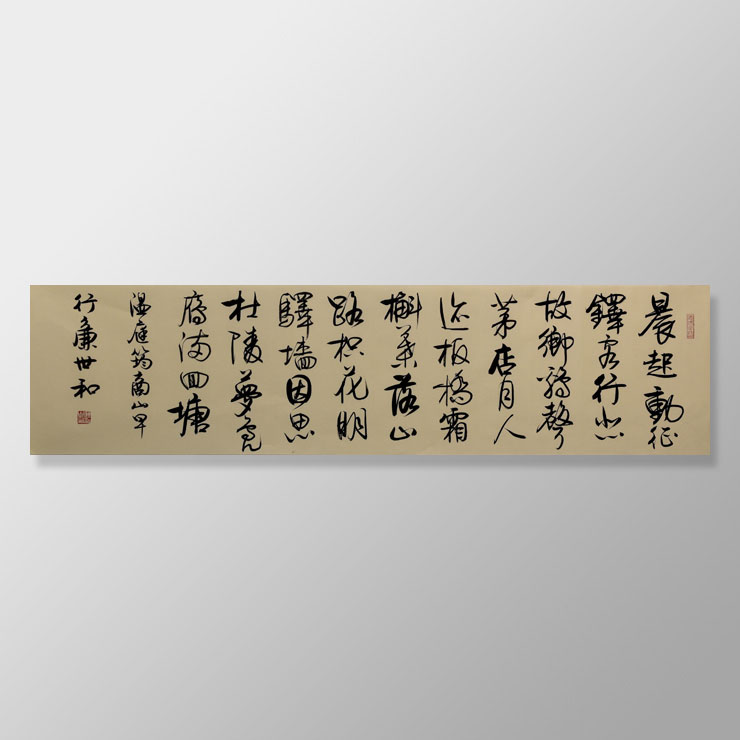 晨起動征
鐸客行悲
故鄉鷄聲
茅店月人
迹板橋霜
槲葉落山
路枳花明
驛墻因思
杜陵夢鳧
雁滿回塘
溫庭筠商山早
行廉世和